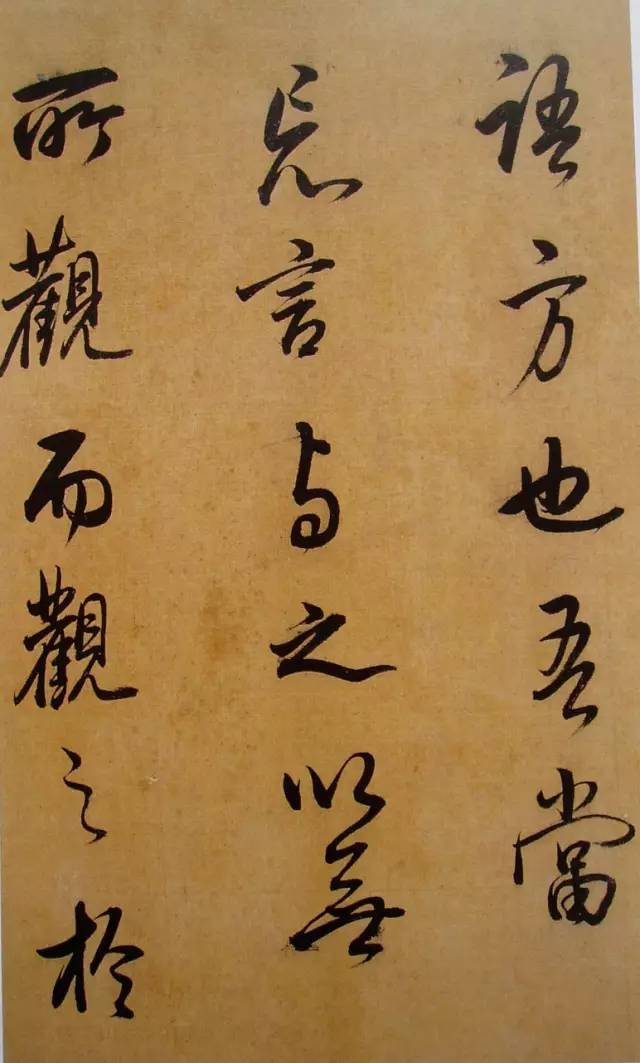 語方也吾當
忘言与之以無
所觀而觀之於